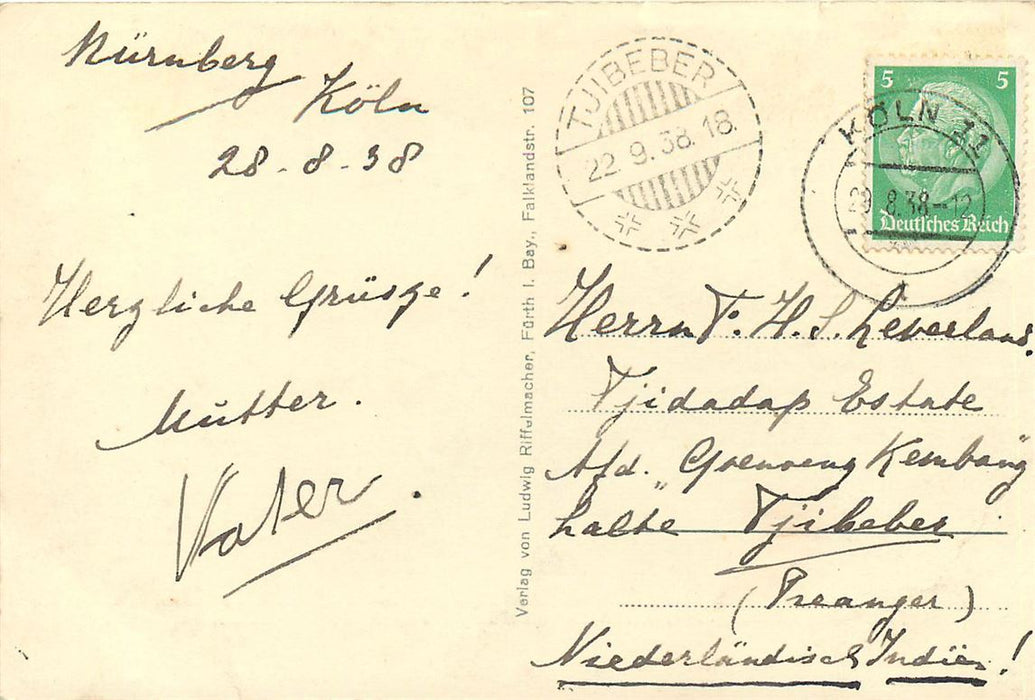 Nürnberg
Köln
28-8-38
Herzliche Grüsze!
Mutter.
Vater.
Verlag von Ludwig Riffelmacher, Fürth i. Bay., Falklandstr. 107
TJIBEBER
22.9.38.18
5 5
KÖLN 11
8.38-12
Deutsches Reich
Herrn T. H. S. Leverlans.
Tjidadap Estate
Afd. „Goenoeng Kembang
halte Tjibeber
(Preanger)
Niederländisch Indien!